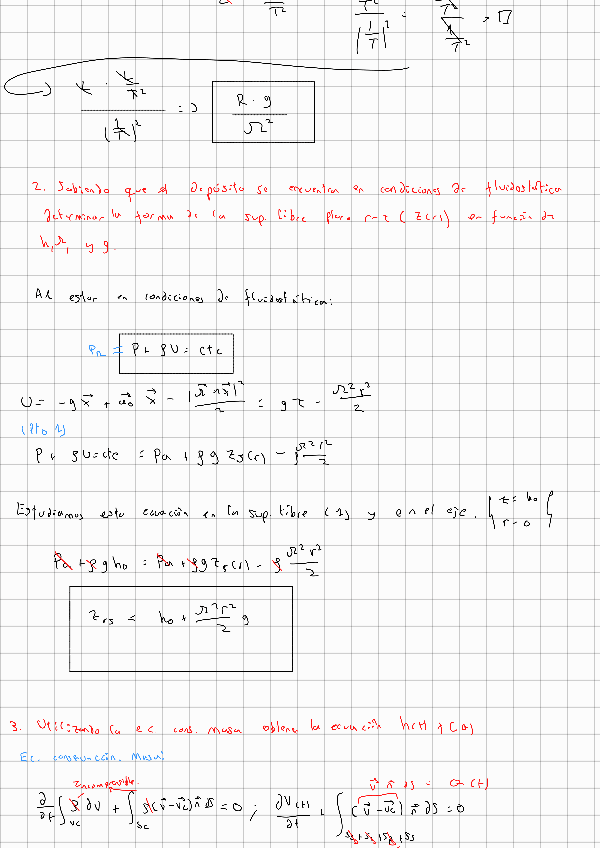 R · g / Ω²
2. Sabiendo que el depósito se encuentra en condiciones de fluidostática
determinar la forma de la sup. libre plano r-z (Z(r)) en función de
h, Ω, y g.
Al estar en condiciones de fluidostática:
P + ρU = ctc
U = -g x⃗ + a⃗₀ x⃗ - |Ω⃗ ∧ x⃗|² / 2 = gz - Ω²r² / 2
(Pto 1)
P + ρU = ctc = Pa + ρg Zs(r) - ρ Ω²r² / 2
Estudiamos esta ecuación en la sup. libre (1) y en el eje. { z = h₀
r = 0 }
Pa + ρg h₀ = Pa + ρg Zs(r) - ρ Ω²r² / 2
h₀ + Ω²r² / 2 g
3. Utilizando la ec cons. masa obtener la ecuación
Ec. conservación. Masa:
Incompresible.
v⃗ n⃗ ds = Q(t)
∂/∂t ∫Vc ρ dV + ∫Sc ρ(v⃗ - v⃗c) n⃗ ds = 0 ; ∂V(t)/∂t + ∫ (v⃗ - v⃗c) n⃗ ds = 0